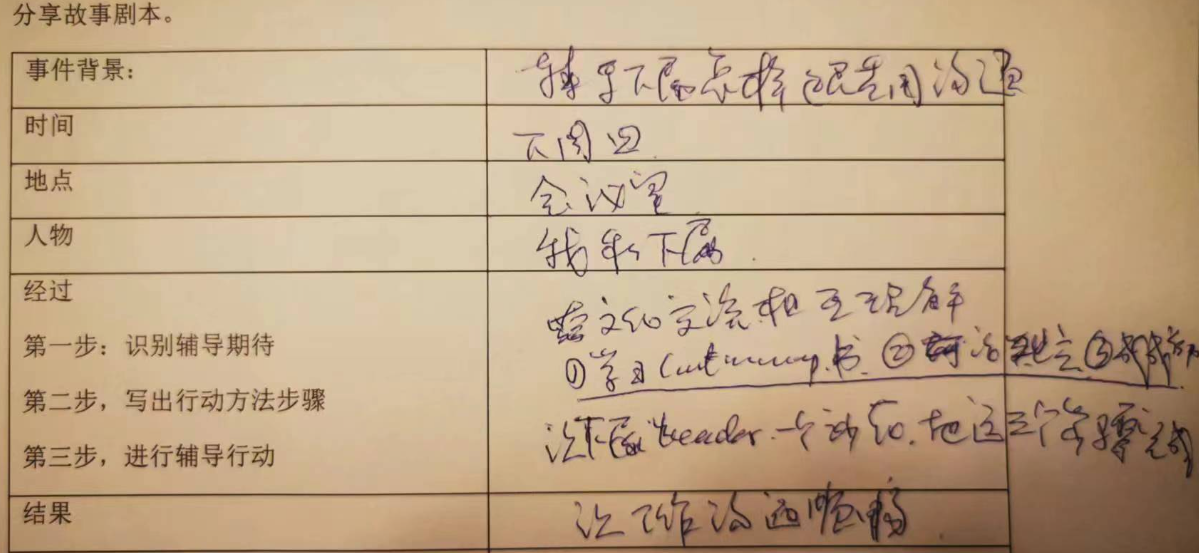 分享故事剧本。
事件背景： 下属怎样跟老外沟通
时间 下周四
地点 会议室
人物 我和下属
经过 跨文化交流相互理解
第一步：识别辅导期待 ①学习 书 ② ③
第二步，写出行动方法步骤
第三步，进行辅导行动 让下属 leader 一个 这三个步骤
结果 让工作沟通顺畅